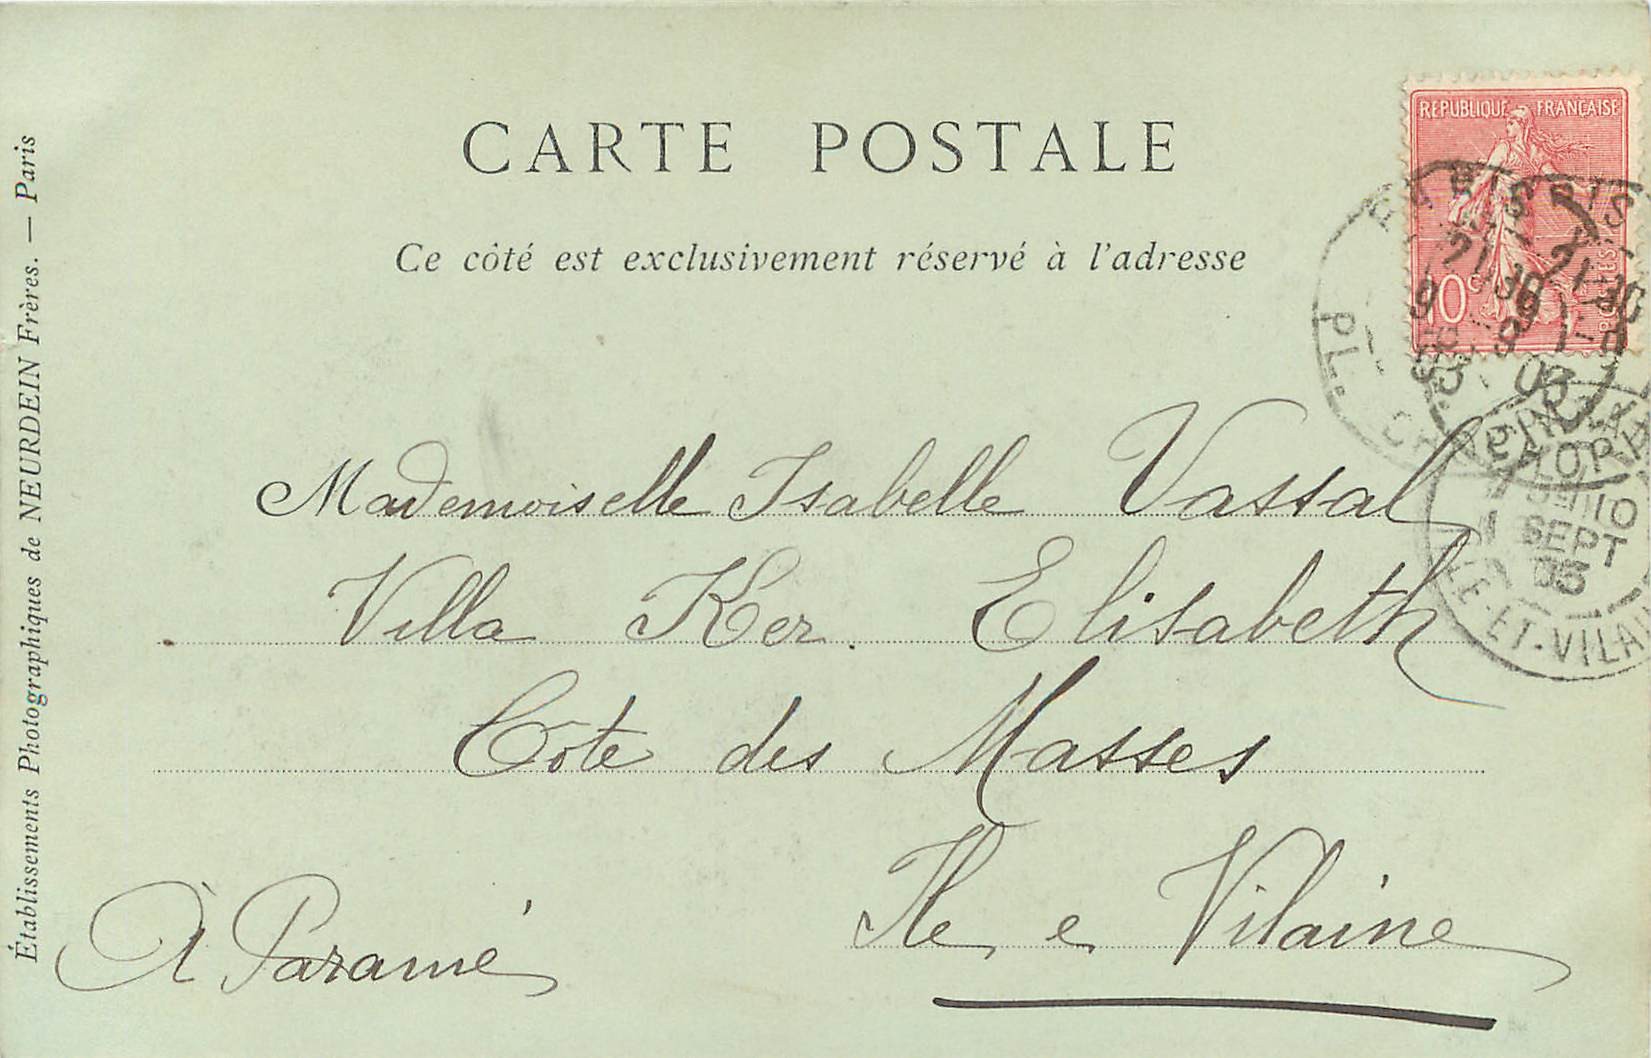 CARTE POSTALE
Ce côté est exclusivement réservé à l'adresse
REPUBLIQUE FRANÇAISE
POSTES
10 c
PL. CH
03
03
10
SEPT
03
ET-VILAI
Mademoiselle Isabelle Vassal
Villa Ker Elisabeth
Cote des Masses
Ile e Vilaine
À Paramé
Établissements Photographiques de NEURDEIN Frères. — Paris